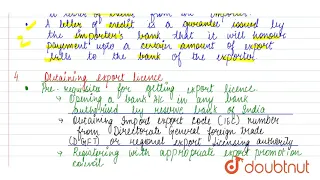 a letter of credit from an importer.
A letter of credit is a guarantee issued by
the importer's bank that it will honour
payment upto a certain amount of export
bills to the bank of the exporter.
4 Obtaining export licence
Pre-requisite for getting export licence
→ Opening a bank A/c in any bank
authorised by reserve bank of India
→ Obtaining Import export code (IEC) number
from Directorate General foreign trade
(DGFT) or regional export licensing authority
→ Registering with appropriate export promotion
council
doubtnut